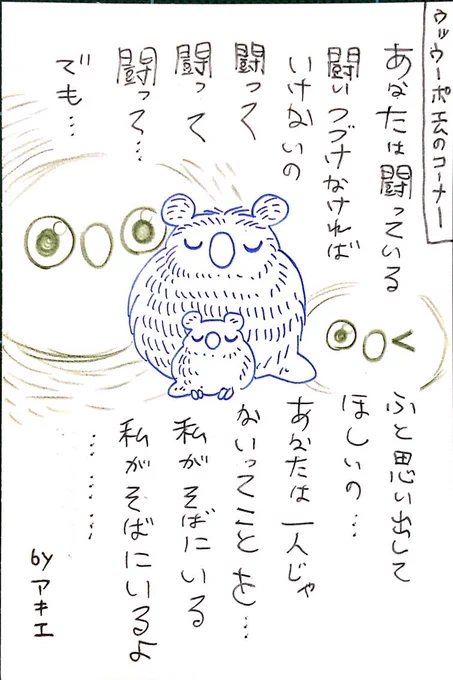 ウッウーポエムのコーナー
あなたは闘っている
闘いつづけなければ
いけないの
闘って
闘って
闘って…
でも…
ふと思い出して
ほしいの…
あなたは一人じゃ
ないってことを…
私がそばにいる
私がそばにいるよ
………
by アキエ